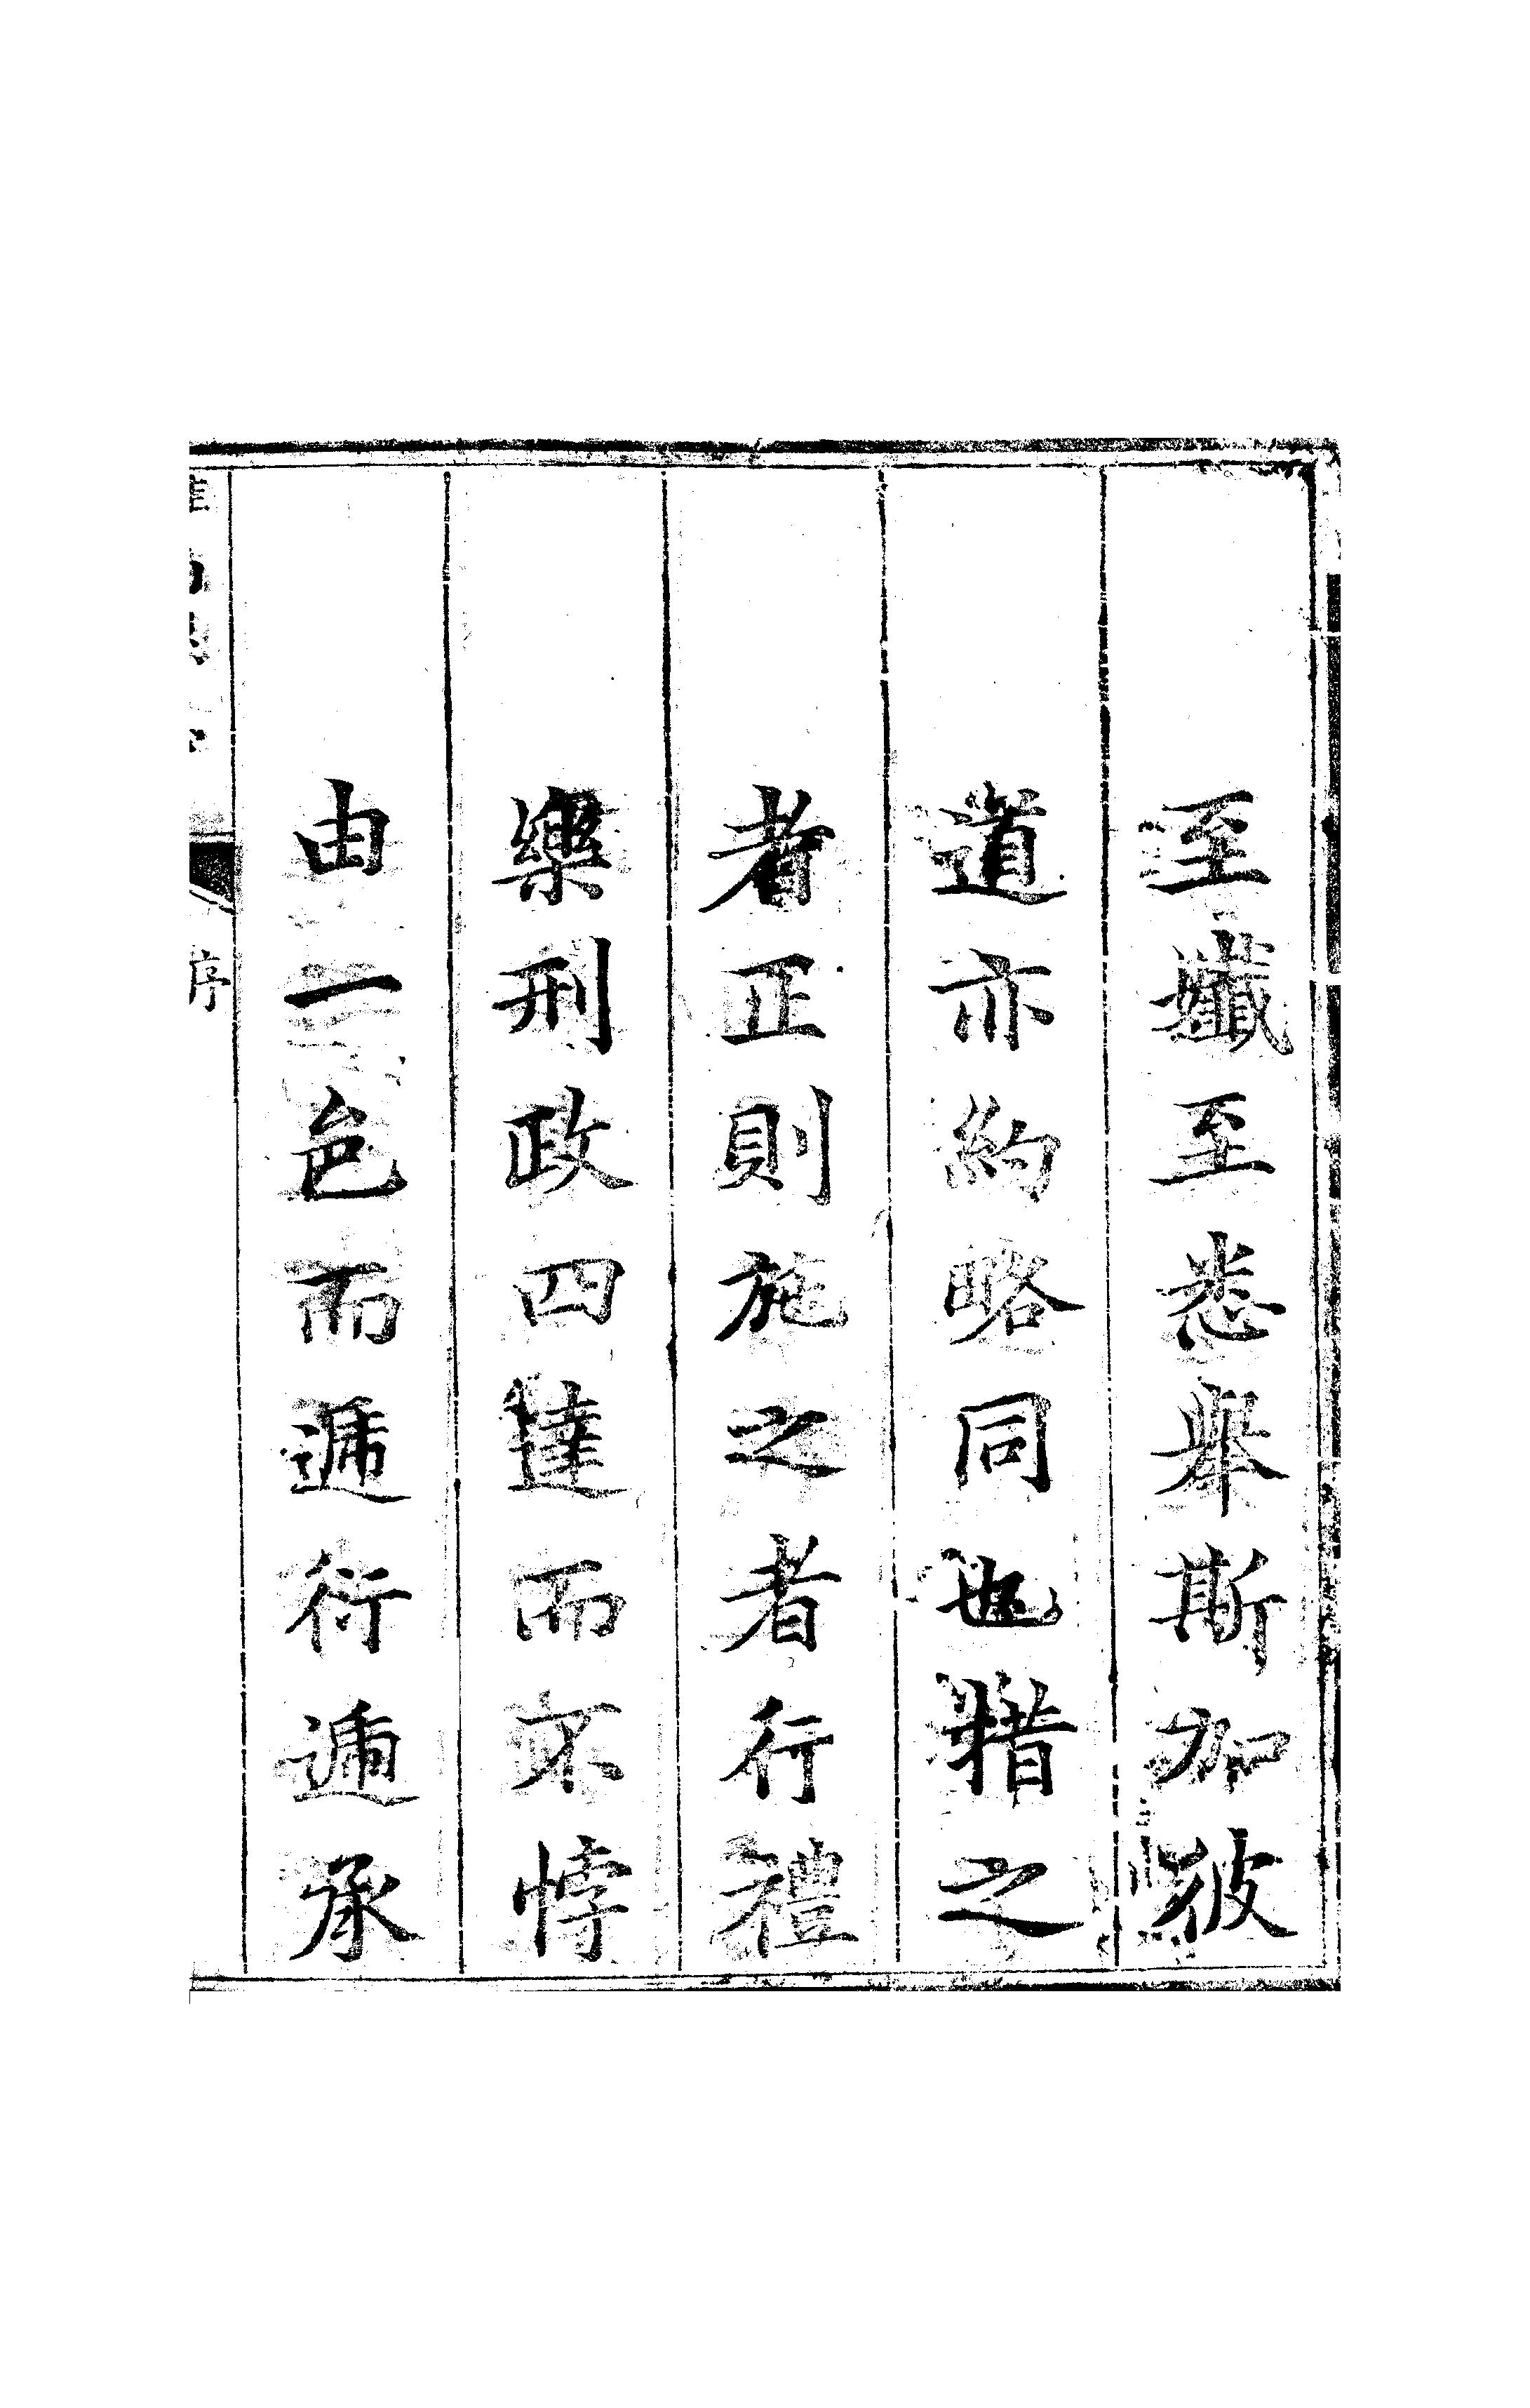 至孅至悉舉斯加彼
道亦約略同也措之
者正則施之者行禮
樂刑政四達而不悖
由一邑而遞衍遞承
序